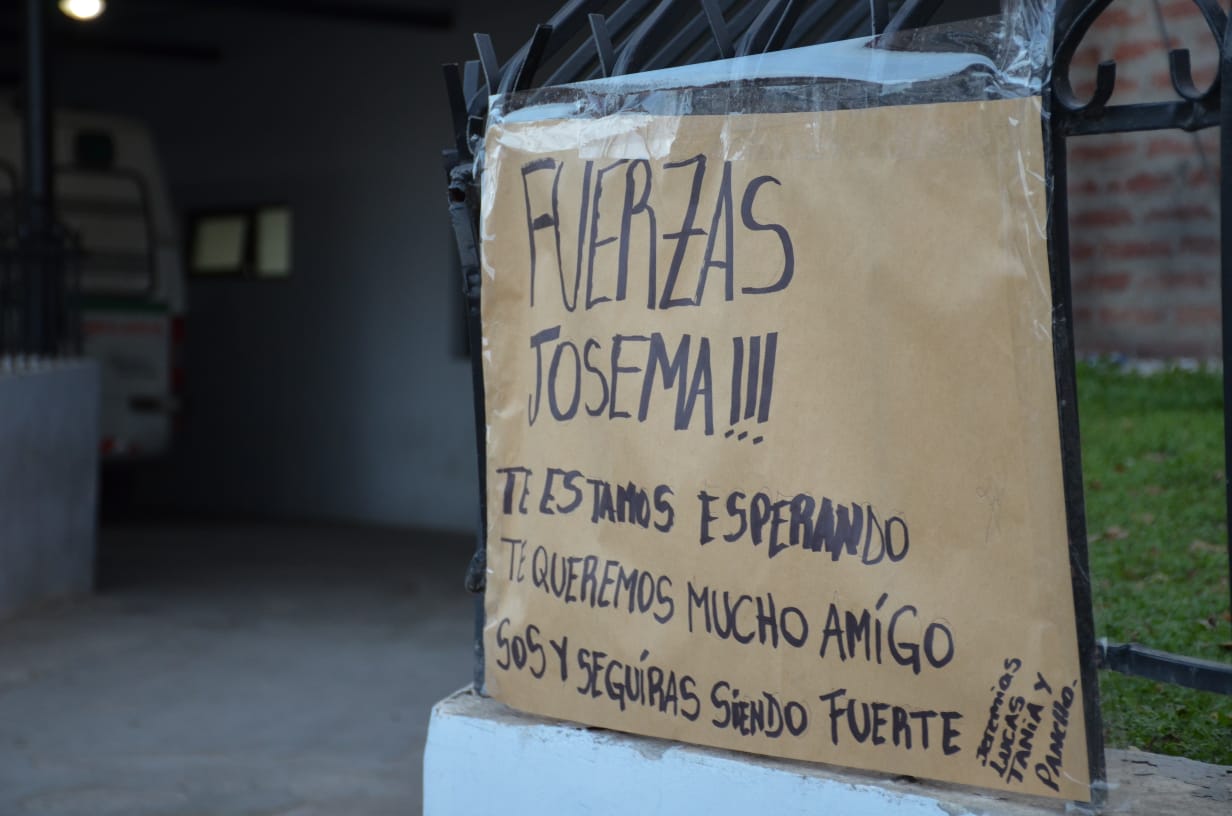 FUERZAS
JOSEMA!!!
TE ESTAMOS ESPERANDO
TE QUEREMOS MUCHO AMÍGO
SOS Y SEGUÍRAS SIENDO FUERTE
JEREMIAS
LUCAS
TANIA Y
PANCHO.